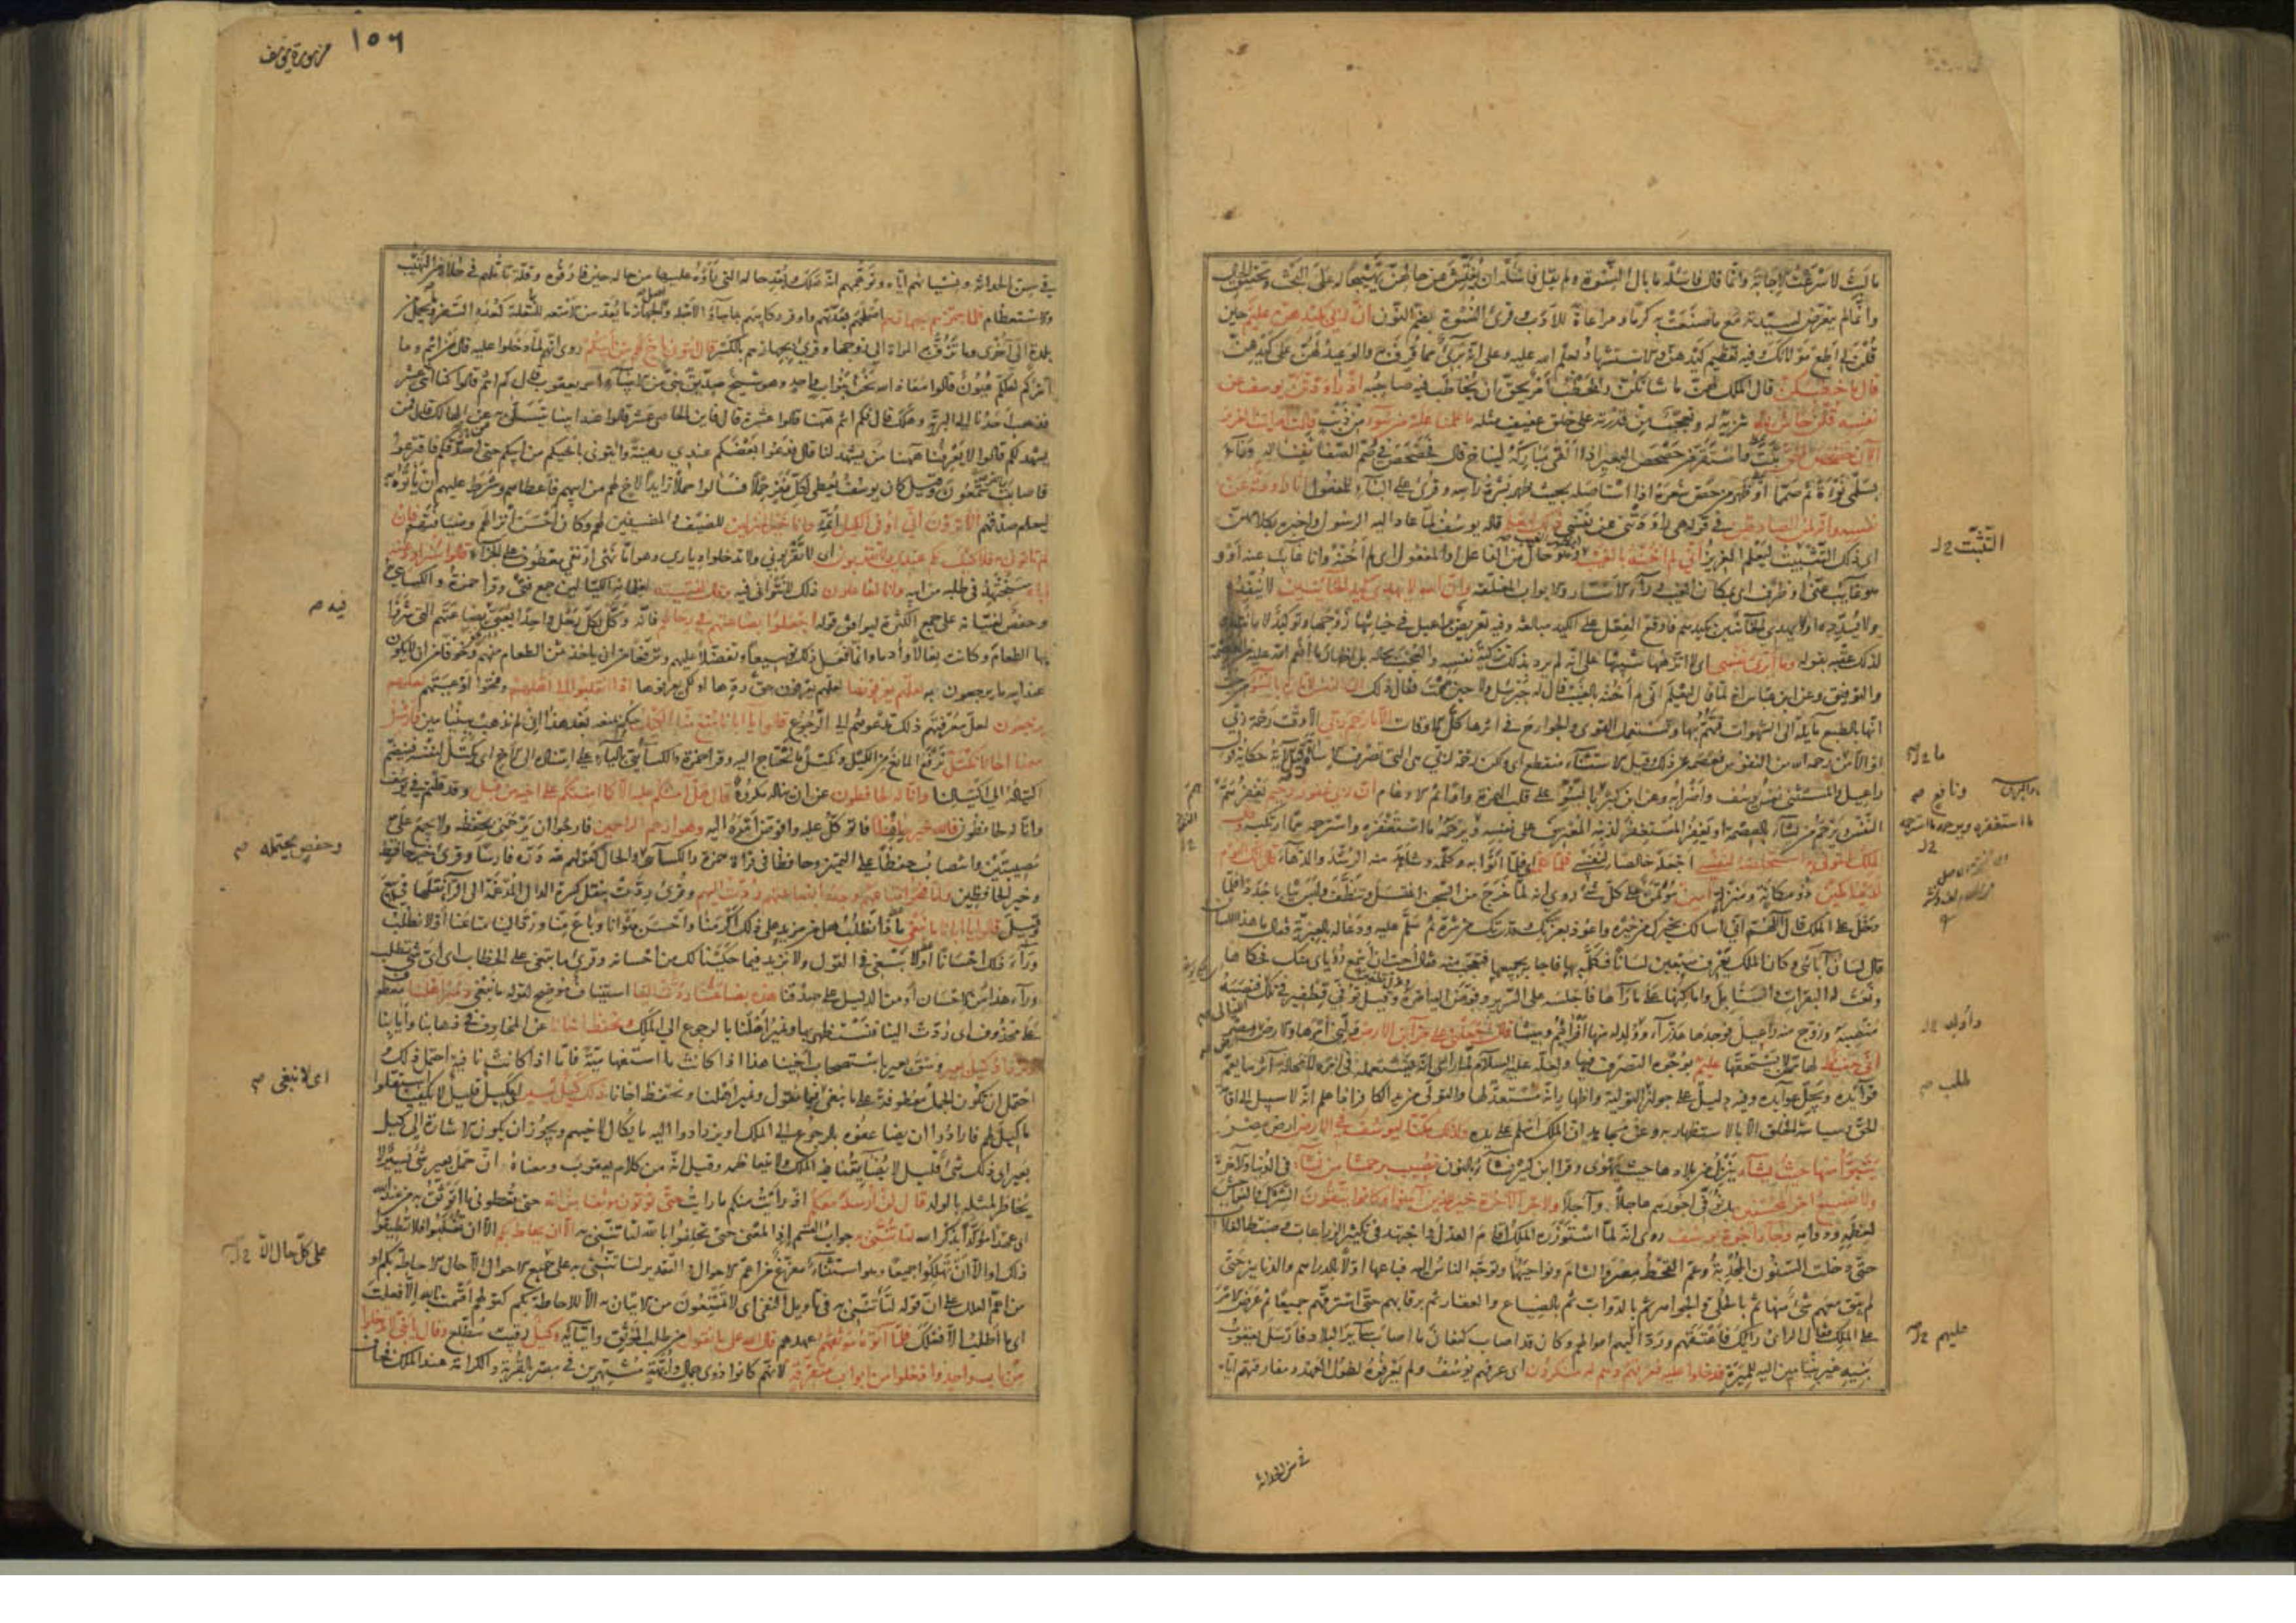 ما لبث لاسرعت الاجابة وانما قال فاسئله ما بال النسوة ولم يقل فاسئله ان يفتش عن حالهن تهييجا له على البحث وتحقيق الحال
وانما لم يتعرض لسيدته مع ما صنعت به كرما ومراعاة للادب وقرئ النسوة بضم النون ان ربي بكيدهن عليم حين
قلن لي اطع مولاتك وفيه تعظيم كيدهن والاستشهاد بعلم الله عليه وعلى انه برئ مما قرف به والوعيد لهن على كيدهن
قال ما خطبكن قال الملك لهن ما شانكن والخطب امر يحق ان يخاطب فيه صاحبه اذ راودتن يوسف عن
نفسه قلن حاش لله تنزيه له وتعجب من قدرته على خلق عفيف مثله ما علمنا عليه من سوء من ذنب قالت امرات العزيز
الآن حصحص الحق ثبت واستقر من حصحص البعير اذا القى مباركه ليناخ قال فحصحص في صم الصفا ثفناته وناء
بسلمى نوءة ثم صمما او ظهر من حص شعره اذا استاصله بحيث ظهر بشرة راسه وقرئ على البناء للمفعول انا راودته عن
نفسه وانه لمن الصادقين في قوله هي راودتني عن نفسي ذلك ليعلم قاله يوسف لما عاد اليه الرسول واخبره بكلامهن
اي ذلك التثبيت ليعلم العزيز اني لم اخنه بالغيب بظهر الغيب وهو حال من الفاعل او المفعول اي لم اخنه وانا غايب عنه او
هو غايب عني او ظرف اي بمكان الغيب وراء الاستار والابواب المغلقة وان الله لا يهدي كيد الخائنين لا ينفذه
ولا يسدده او لا يهدي الخائنين بكيدهم فاوقع الفعل على الكيد مبالغة وفيه تعريض براعيل في خيانتها زوجها وتوكيد لامانته
لذلك عقبه بقوله وما ابرئ نفسي اي لا انزهها تنبيها على انه لم يرد بذلك تزكية نفسه والعجب بحاله بل اظهار ما انعم الله عليه من العصمة
والتوفيق وعن ابن عباس انه لما قال ليعلم اني لم اخنه بالغيب قال له جبرئيل ولا حين هممت فقال ذلك ان النفس لامارة بالسوء من حيث
انها بالطبع مايلة الى الشهوات فتهم بها وتستعمل القوى والجوارح في اثرها كل الاوقات الا ما رحم ربي الا وقت رحمة ربي
او الا من رحمه الله من النفوس فعصمه عن ذلك وقيل الاستثناء منقطع اي ولكن رحمة ربي هي التي تصرف الاساءة وقيل الآية حكاية قول
راعيل والمستثنى نفس يوسف واضرابه وعن ابن كثير بالسو على قلب الهمزة واوا ثم الادغام ان ربي غفور رحيم يغفر هم
النفس ويرحم من يشاء بالعصمة او يغفر للمستغفر لذنبه المعترف على نفسه ويرحمه ما استغفره واسترحمه مما ارتكبه وقال
الملك ائتوني به استخلصه لنفسي اجعله خالصا لنفسي فلما كلمه اي فلما اتوا به وكلمه وشاهد منه الرشد والدهاء قال انك اليوم
لدينا مكين ذو مكانة ومنزلة امين مؤتمن على كل شئ روي انه لما خرج من السجن اغتسل وتنظف ولبس ثيابا جددا فلما
دخل على الملك قال اللهم اني اسالك بخيرك من خيره واعوذ بعزتك وقدرتك من شره ثم سلم عليه ودعا له بالعبرية فقال ما هذا اللسان
قال لسان آبائي وكان الملك يعرف سبعين لسانا فكلمه بها فاجابه بجميعها فتعجب منه فقال احب ان اسمع رؤياي منك فحكاها
ونعت له البقرات والسنابل واماكنها على ما رآها فاجلسه على السرير وفوض اليه امره وقيل توفي قطفير في تلك فنصبه
منصبه وزوج منه راعيل فوجدها عذراء وولد له منها افراثيم وميشا قال اجعلني على خزائن الارض ولني امرها والارض ارض مصر
اني حفيظ لها ممن لا يستحقها عليم بوجوه التصرف فيها ولعله عليه السلام لما راى انه يستعمله في امره لا محالة آثر ما يعم
فوائده ويجل عوايده وفيه دليل على جواز التولية واظهار انه مستعد لها والتولي من يد الكافر اذا علم انه لا سبيل الى اقامة
الحق وسياسة الخلق الا بالاستظهار به وعن مجاهد ان الملك اسلم على يده وكذلك مكنا ليوسف في الارض ارض مصر
يتبوأ منها حيث يشاء ينزل من بلادها حيث يهوى وقرا ابن كثير نشاء بالنون نصيب برحمتنا من نشاء في الدنيا والآخرة
ولا نضيع اجر المحسنين بل نوفي اجورهم عاجلا وآجلا ولاجر الآخرة خير للذين آمنوا وكانوا يتقون الشرك والفواحش
لعظمه ودوامه وجاء اخوة يوسف روي انه لما استوزره الملك اقام العدل واجتهد في تكثير الزراعات وضبط الغلات
حتى دخلت السنون المجدبة وعم القحط مصر والشام ونواحيها وتوجه الناس اليه فباعها اولا بالدراهم والدنانير حتى
لم يبق معهم شئ منها ثم بالحلي والجواهر ثم بالدواب ثم بالضياع والعقار ثم برقابهم حتى استرقهم جميعا ثم عرض الامر
على الملك فقال الراى رايك فاعتقهم ورد اليهم اموالهم وكان قد اصاب كنعان ما اصاب سائر البلاد فارسل يعقوب
بنيه غير بنيامين اليه للميرة فدخلوا عليه فعرفهم وهم له منكرون اي عرفهم يوسف ولم يعرفوه لطول العهد ومفارقتهم اياه
التثبت
ما
ونافع
ما استغفره ويرحم ما استرحمه
وأولد
طلب
عليهم
في سن الحداثة
١٥٦
سورة يوسف
في سن الحداثة ونسيانهم اياه وتوهمهم انه هلك وبعد حاله التي راوه عليها من حاله حين فارقوه وقلة تاملهم في حلاه من التهيب
والاستعظام ولما جهزهم بجهازهم اصلحهم بعدتهم واوقر ركايبهم بما جاؤا لاجله والجهاز ما يعد من الامتعة للنقلة كعدد السفر وما يحمل من
بلدة الى اخرى وما تزف به المراة الى زوجها وقرئ بجهازهم بالكسر قال ائتوني باخ لكم من ابيكم روي انهم لما دخلوا عليه قال من انتم وما
امركم لعلكم عيون قالوا معاذ الله نحن بنو اب واحد وهو شيخ صديق نبي من الانبياء اسمه يعقوب قال كم انتم قالوا كنا اثني عشر
فذهب احدنا الى البرية وهلك قال فكم انتم ههنا قالوا عشرة قال فاين الحادي عشر قالوا عند ابينا يتسلى به عن الهالك قال فمن
يشهد لكم قالوا لا يعرفنا ههنا من يشهد لنا قال فدعوا بعضكم عندي رهينة وائتوني باخيكم من ابيكم حتى اصدقكم فاقترعوا
فاصابت شمعون وقيل كان يوسف يعطي لكل نفر حملا فسالوا حملا زايدا لاخ لهم من ابيهم فاعطاهم وشرط عليهم ان ياتوه به
ليعلم صدقهم الا ترون اني اوفي الكيل اتمه وانا خير المنزلين للضيف والمضيفين لهم وكان احسن انزالهم وضيافتهم فان
لم تاتوني به فلا كيل لكم عندي ولا تقربون اي لا تقربوني ولا تدخلوا دياري وهو اما نهي او نفي معطوف على الجزاء قالوا سنراود عنه
اباه سنجتهد في طلبه من ابيه وانا لفاعلون ذلك لا نتوانى فيه وقال لفتيته لغلمانه الكيالين جمع فتى وقرا حمزة والكسائي
وحفص لفتيانه على جمع الكثرة ليوافق قوله اجعلوا بضاعتهم في رحالهم فانه وكل لكل رحل واحدا يعبئ بضاعتهم التي شروا
بها الطعام وكانت نعالا وأدما وانما فعل ذلك توسيعا وتفضلا عليهم وترفعا من ان ياخذ ثمن الطعام منهم وخوفا من ان لا يكون
عند ابيه ما يرجعون به لعلهم يعرفونها لعلهم يعرفون حق ردها او لكي يعرفوها اذا انقلبوا الى اهلهم وفتحوا اوعيتهم لعلهم
يرجعون لعل معرفتهم ذلك تدعوهم الى الرجوع فلما رجعوا الى ابيهم قالوا يا ابانا منع منا الكيل حكم بمنعه بعد هذا ان لم نذهب ببنيامين فارسل
معنا اخانا نكتل نرفع المانع من الكيل ونكتل ما نحتاج اليه وقرا حمزة والكسائي بالياء على اسناده الى الاخ اي يكتل لنفسه فينضم
اكتياله الى اكتيالنا وانا له لحافظون عن ان يناله مكروه قال هل آمنكم عليه الا كما امنتكم على اخيه من قبل وقد قلتم في يوسف
وانا له لحافظون فالله خير حافظا فاتوكل عليه وافوض امره اليه وهو ارحم الراحمين فارجو ان يرحمني بحفظه ولا يجمع علي
مصيبتين وانتصاب حفظا على التمييز وحافظا في قراءة حمزة والكسائي والحال كقولهم لله دره فارسا وقرئ خير حافظ
وخير الحافظين ولما فتحوا متاعهم وجدوا بضاعتهم ردت اليهم وقرئ ردت بنقل كسرة الدال المدغمة الى الراء نقلها في بيع
وقيل قالوا يا ابانا ما نبغي ماذا نطلب هل من مزيد على ذلك اكرمنا واحسن مثوانا وباع منا ورد علينا متاعنا او لا نطلب
وراء ذلك احسانا او لا نبغي في القول ولا نزيد فيما حكينا لك من احسانه وقرئ ما تبغي على الخطاب اي اى شئ تطلب
وراء هذا من الاحسان او من الدليل على صدقنا هذه بضاعتنا ردت الينا استيناف موضح لقوله ما نبغي ونمير اهلنا معطوف
على محذوف اي ردت الينا فنستظهر بها ونمير اهلنا بالرجوع الى الملك ونحفظ اخانا عن المخاوف في ذهابنا وايابنا
ونزداد كيل بعير وسق بعير باستصحاب اخينا هذا اذا كانت ما استفهامية فاما اذا كانت نافية احتمل ذلك
احتمل ان تكون الجمل معطوفة على ما نبغي اي لا نبغي فيما نقول ونمير اهلنا ونحفظ اخانا ذلك كيل يسير اي مكيل قليل لا يكفينا استقلوا
ما كيل لهم فارادوا ان يضاعفوه بالرجوع الى الملك او يزدادوا اليه ما يكال لاخيهم ويجوز ان يكون الاشارة الى كيل
بعير اي ذلك شئ قليل لا يضايقنا فيه الملك ولا يتعاظمه وقيل انه من كلام يعقوب ومعناه ان حمل بعير شئ يسير لا
يخاطر لمثله بالولد قال لن ارسله معكم اذ رايت منكم ما رايت حتى تؤتون موثقا من الله حتى تعطوني ما اتوثق به من عند الله
اي عهدا مؤكدا بذكر الله لتاتنني به جواب القسم اذ المعنى حتى تحلفوا بالله لتاتنني به الا ان يحاط بكم الا ان تغلبوا فلا تطيقوا
ذلك او الا ان تهلكوا جميعا وهو استثناء مفرغ من اعم الاحوال والتقدير لتاتنني به على جميع الاحوال الا حال الاحاطة بكم او
من اعم العلل على ان قوله لتاتنني به في تاويل النفي اي لا تمتنعون من الاتيان به الا للاحاطة بكم كقولهم اقسمت بالله الا فعلت
اي ما اطلب الا فعلك فلما آتوه موثقهم عهدهم قال الله على ما نقول من طلب الموثق واتيانه وكيل رقيب مطلع وقال يا بني لا تدخلوا
من باب واحد وادخلوا من ابواب متفرقة لانهم كانوا ذوي جمال وابهة مشتهرين في مصر بالقربة والكرامة عند الملك فخاف
فيه
وحفص يحتمله
اي لا نبغي
على كل حال الا